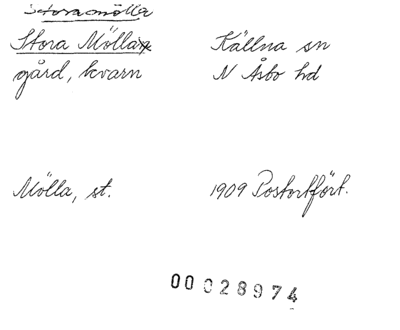 Storamölla
Stora Mölla Källna sn
gård, kvarn N Åsbo hd
Mölla, st. 1909 Postortfört.
00028974